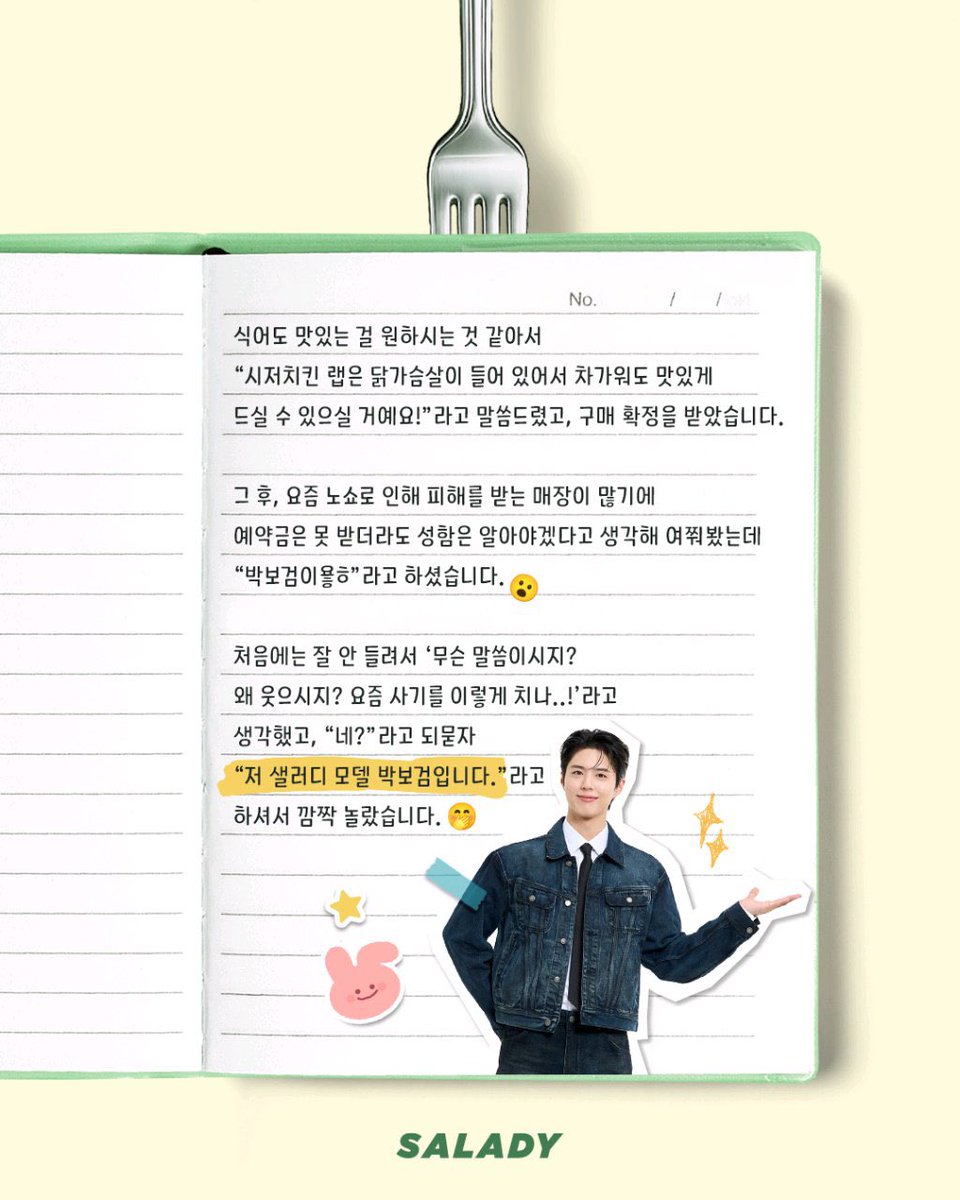 No. / /
식어도 맛있는 걸 원하시는 것 같아서
“시저치킨 랩은 닭가슴살이 들어 있어서 차가워도 맛있게
드실 수 있으실 거예요!”라고 말씀드렸고, 구매 확정을 받았습니다.
그 후, 요즘 노쇼로 인해 피해를 받는 매장이 많기에
예약금은 못 받더라도 성함은 알아야겠다고 생각해 여쭤봤는데
“박보검이욯ㅎ”라고 하셨습니다.
처음에는 잘 안 들려서 ‘무슨 말씀이시지?
왜 웃으시지? 요즘 사기를 이렇게 치나..!’라고
생각했고, “네?”라고 되묻자
“저 샐러디 모델 박보검입니다.”라고
하셔서 깜짝 놀랐습니다.
SALADY